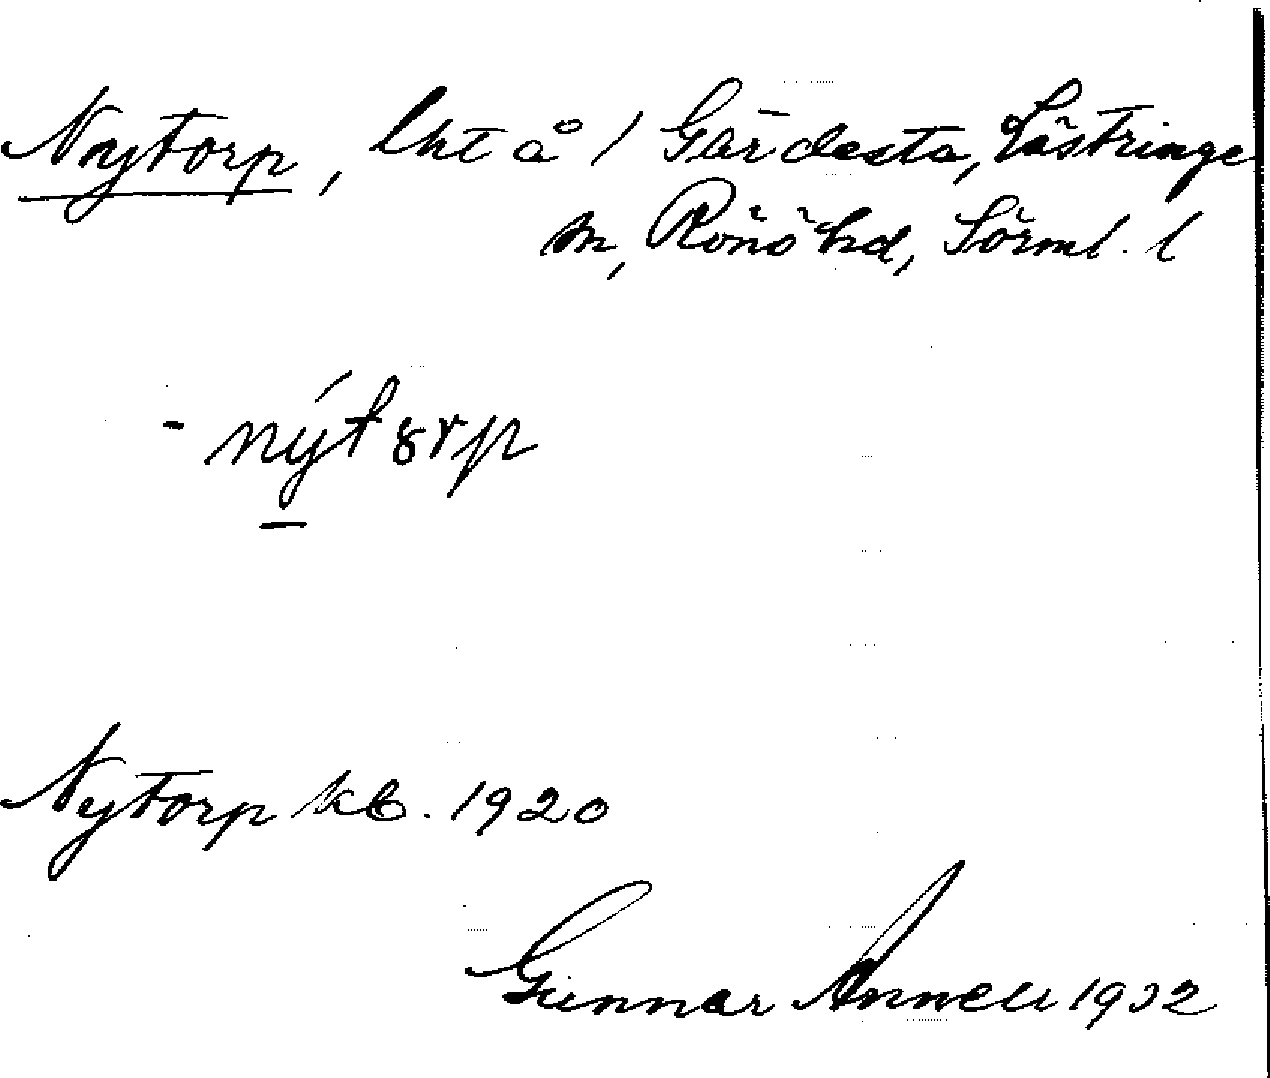 Nytorp, lht å 1 Gärdesta, Lästringe
sn, Rönö hd, Sörml. l
- nýtȣrp
Nytorp kb. 1920
Gunnar Annell 1932